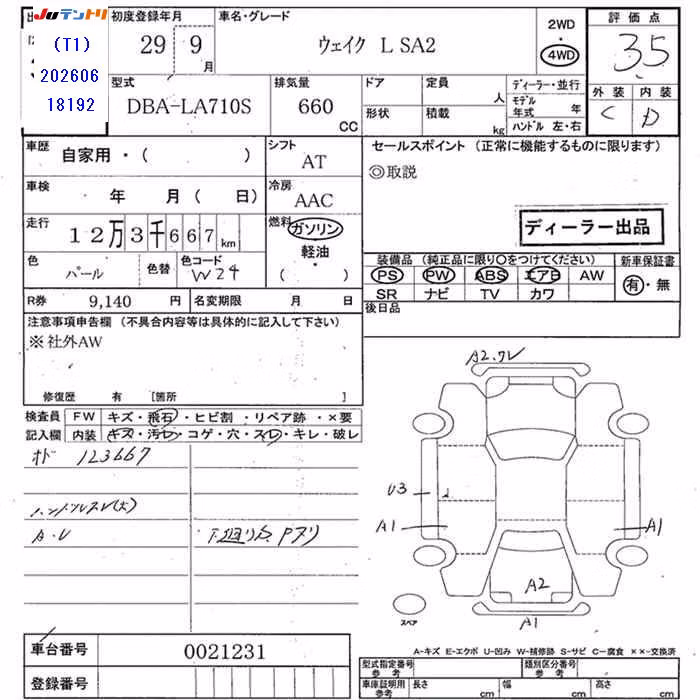 Juテントリ
(T1)
202606
18192
初度登録年月
29 9
月
車名・グレード
ウェイク L SA2
2WD
・
4WD
評価点
3.5
外装 内装
C D
型式
DBA-LA710S
排気量
660
CC
ドア
定員
人
形状
積載
kg
ディーラー・並行
モデル年式 年
ハンドル 左・右
車歴
自家用・( )
シフト
AT
車検
年 月( 日)
冷房
AAC
走行
12万3千667km
燃料
ガソリン
軽油・
( )
色
パール
色替
色コード
W24
R券
9,140 円
名変期限 月 日
セールスポイント (正常に機能するものに限ります)
◎取説
ディーラー出品
装備品 (純正品に限り○をつけてください)
新車保証書
PS PW ABS エアB AW
SR ナビ TV カワ
有・無
後日品
注意事項申告欄 (不具合内容等は具体的に記入して下さい)
※社外AW
修復歴 有 [箇所 ]
検査員
記入欄
FW キズ・飛石・ヒビ割・リペア跡・×要
内装 キズ・汚レ・コゲ・穴・スレ・キレ・破レ
オド 123667
ハンドルスレ(大)
A.U
下廻りサ、Pスリ
A2.ワレ
U3
A1
A1
A2
A1
スペア
A-キズ E-エクボ U-凹み W-補修跡 S-サビ C-腐食 ××-交換済
車台番号
0021231
登録番号
型式指定番号
参考
類別区分番号
参考
車庫証明用
参考
長さ cm
幅 cm
高さ cm